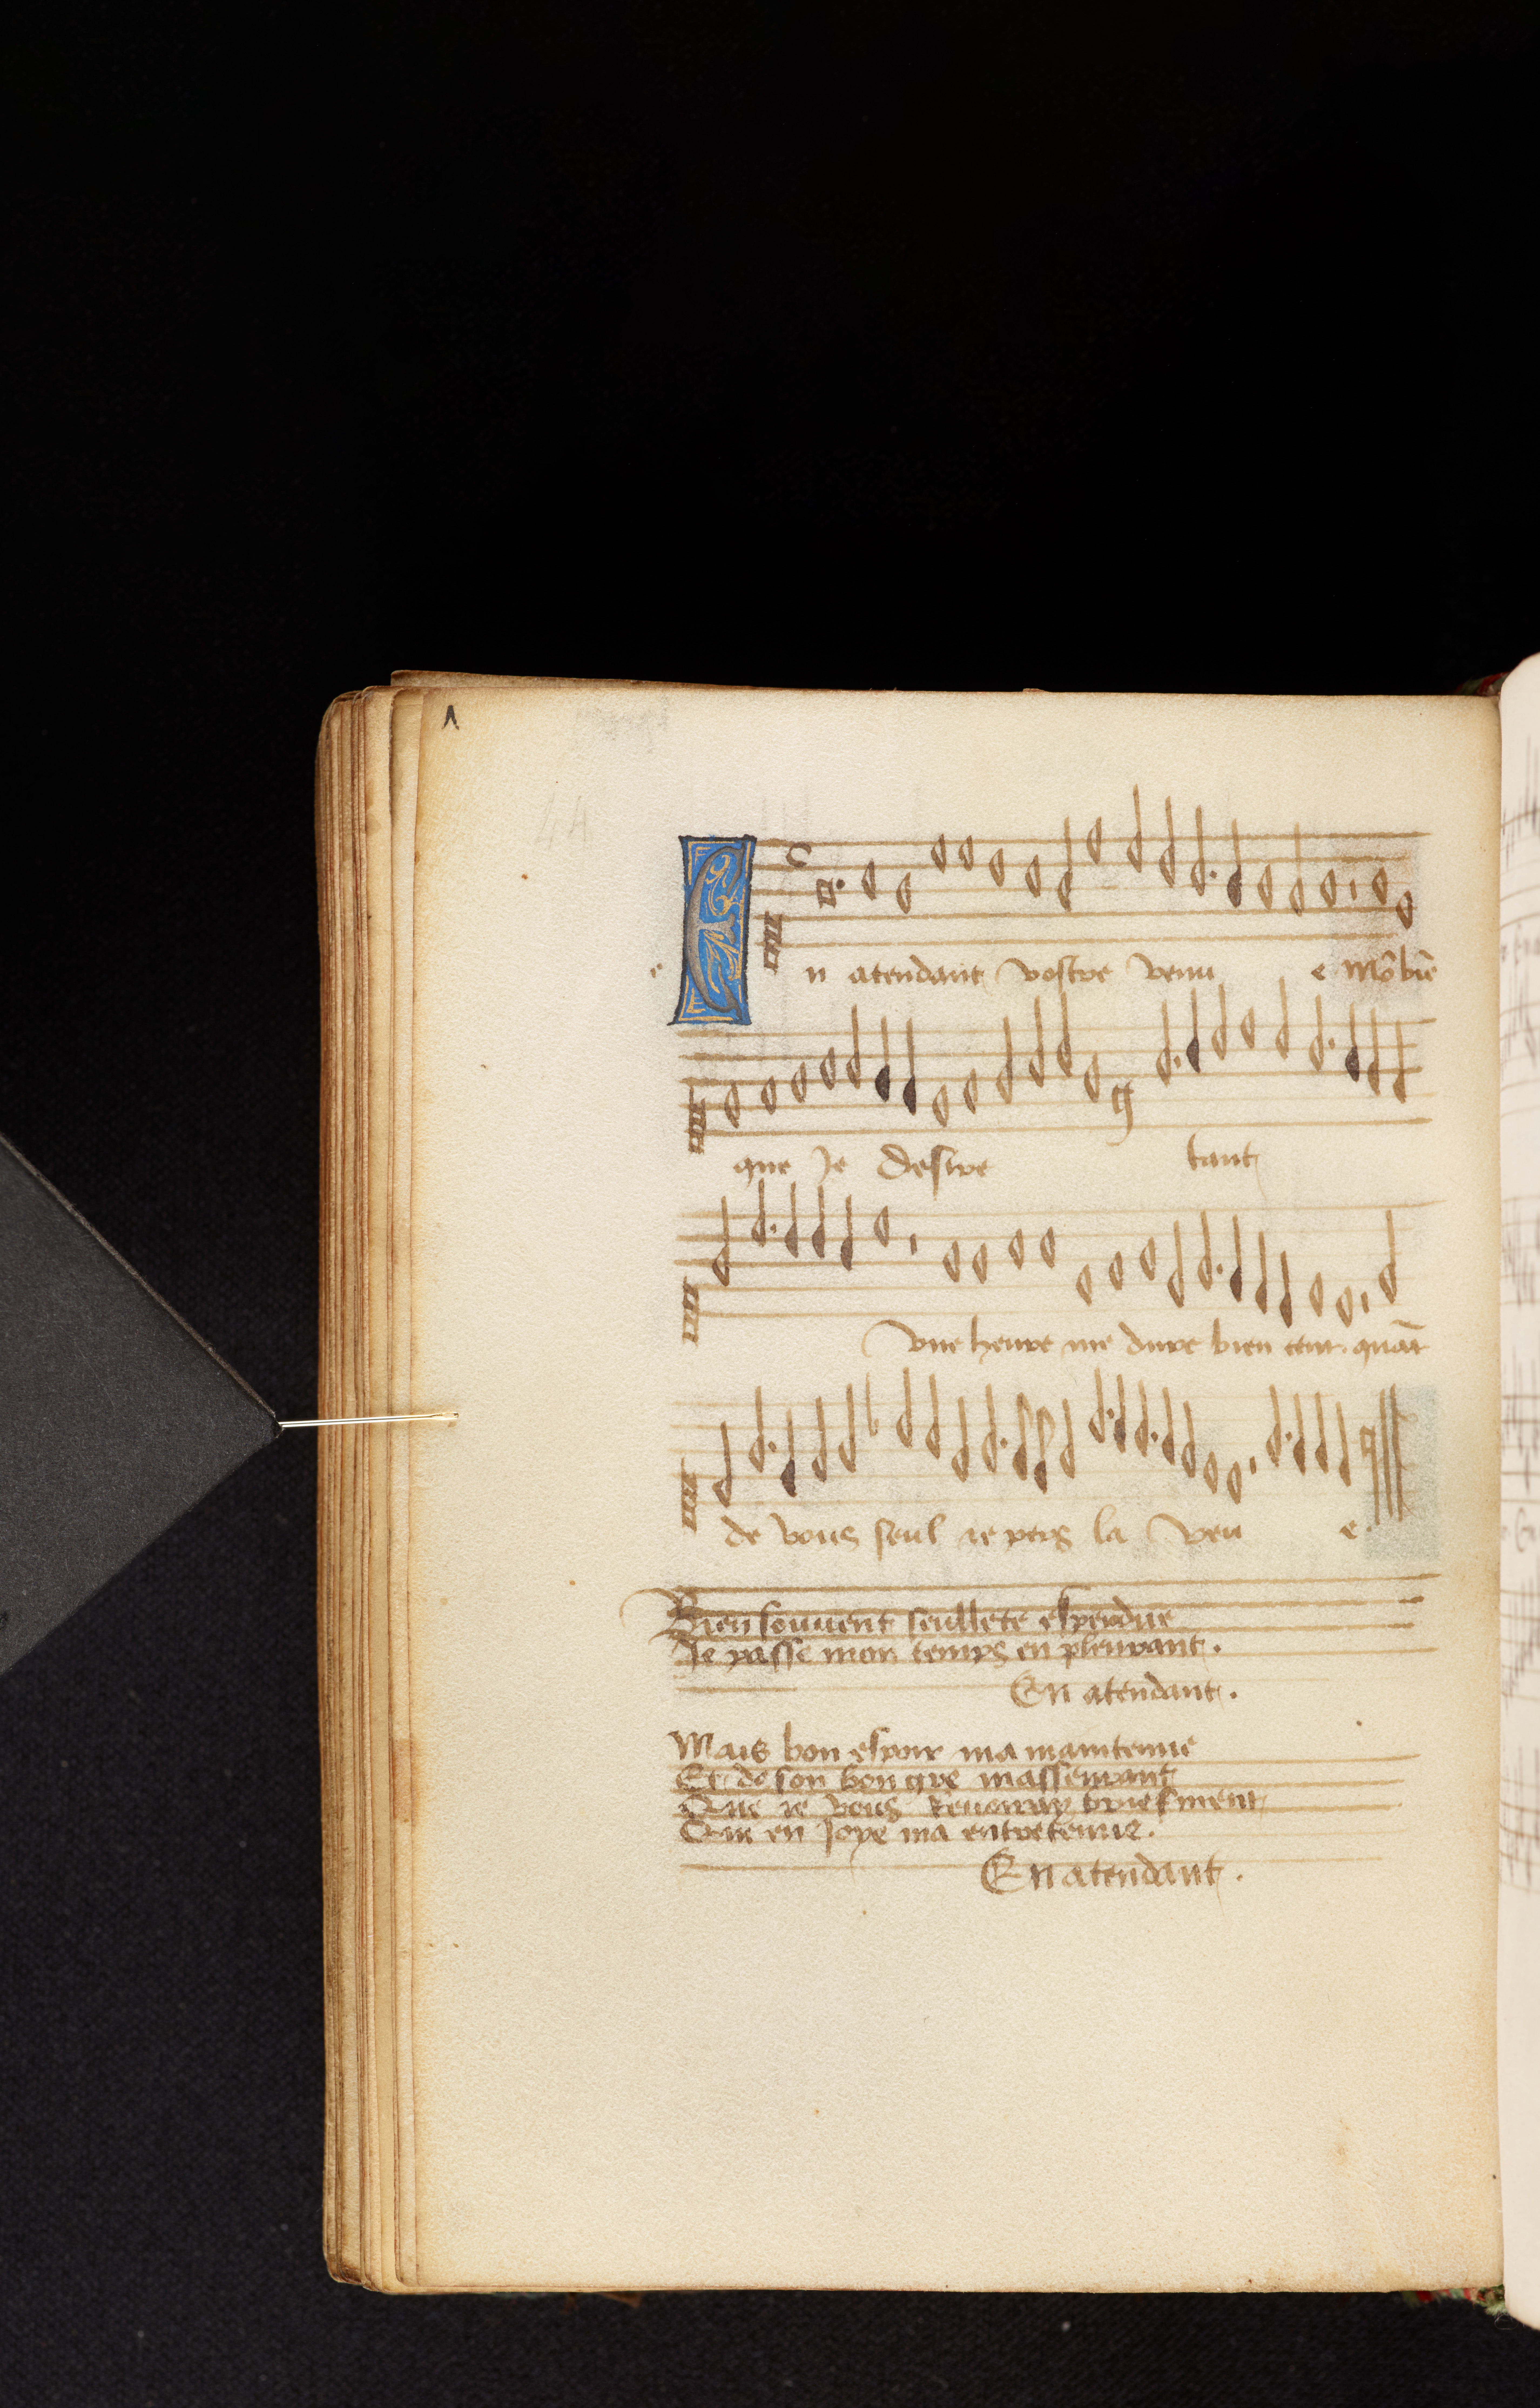 44
En atendant vostre venu e Mō biē
que Je desire tant
Vne heure me dure bien cent. quāt
de vous seul ie pers la veu e.
Bien souuent seullete esperdue
Je passe mon temps en pleurant.
En atendant.
Mais bon espoir ma maintenue
Et de son bon gre massenrant
Que ie vous reuerray briefment
Qui en Joye ma entretenue.
En atendant.